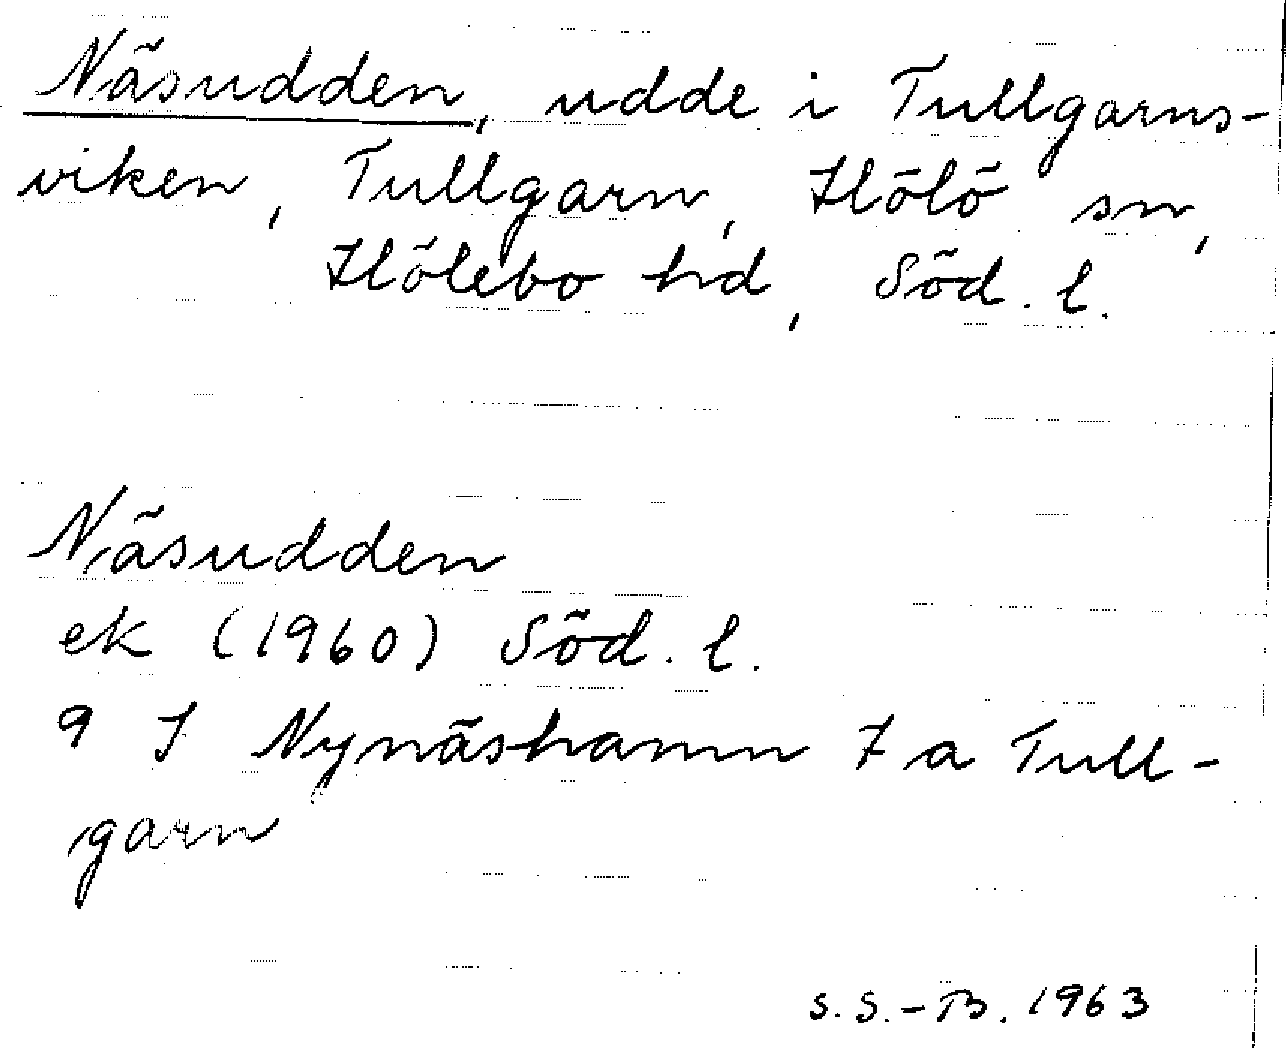 Näsudden, udde i Tullgarns-
viken, Tullgarn, Hölö sn,
Hölebo hd, Söd. l.
Näsudden
ek (1960) Söd. l.
9 I Nynäshamn 7 a Tull-
garn
S. S.-B. 1963